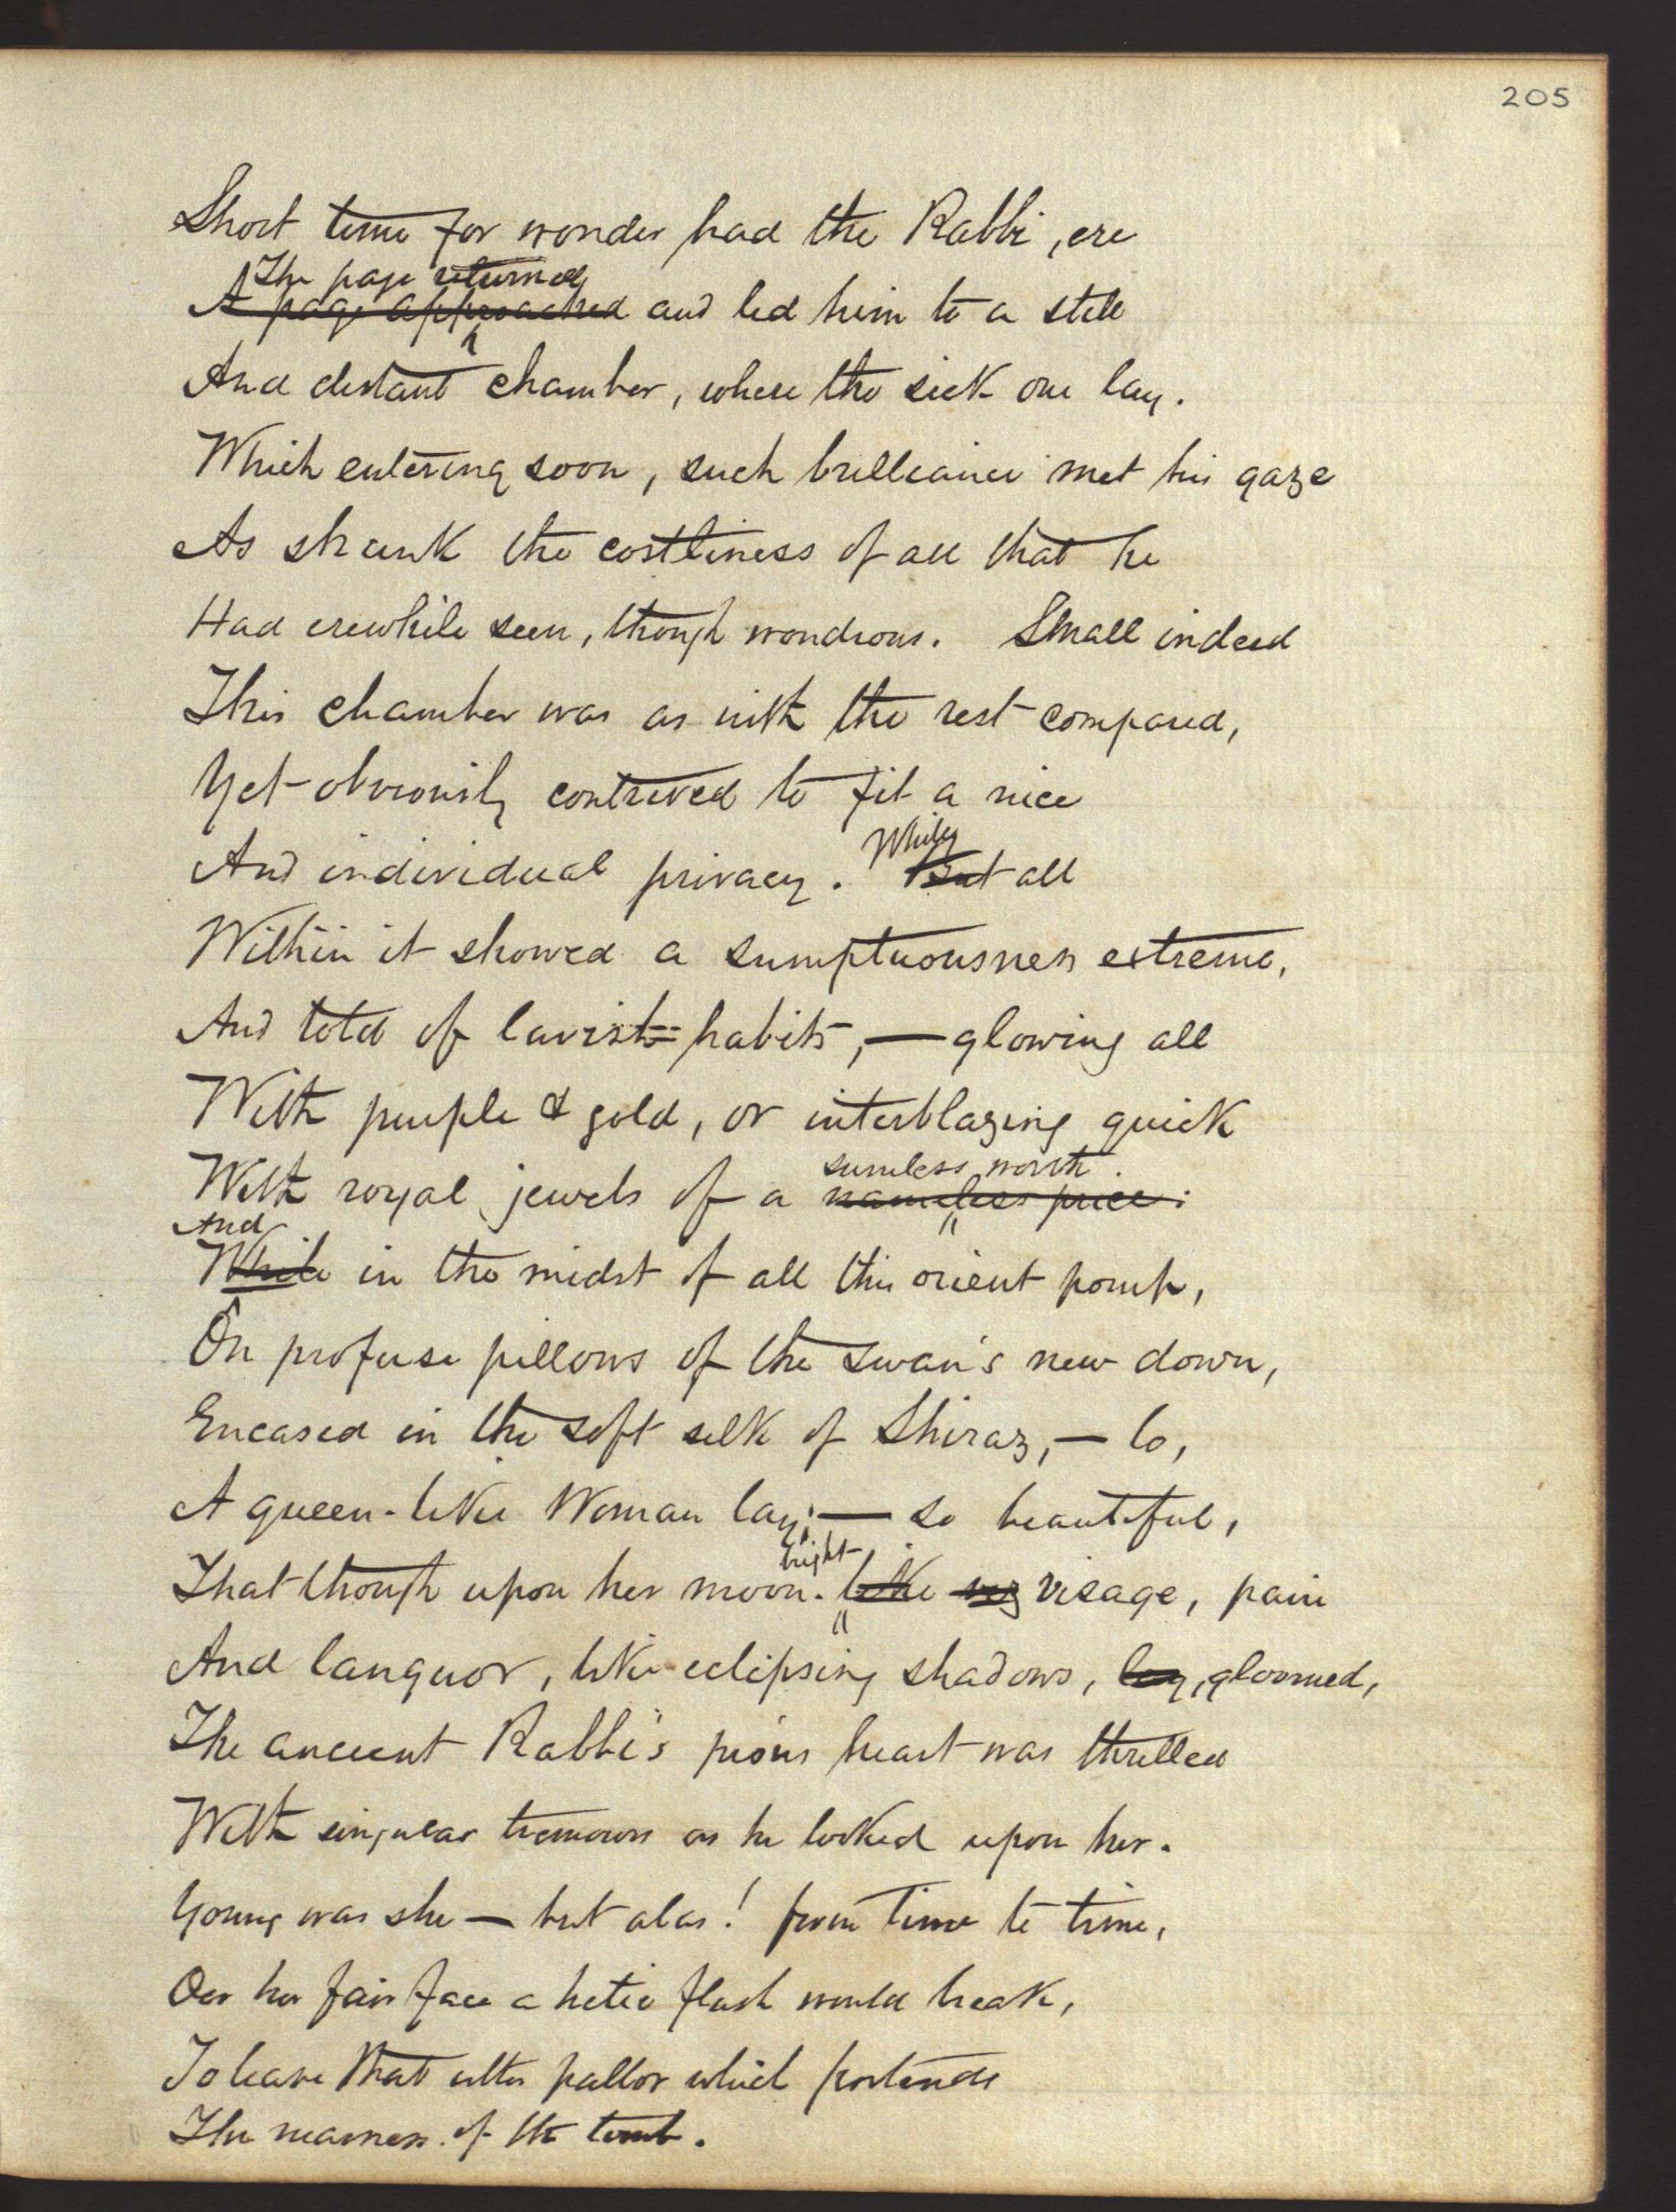 205
Short time for wonder had the Rabbi, ere
The page returned
A page approached and led him to a still
And distant chamber, where the sick one lay.
Which entering soon, such brilliance met his gaze
As shrunk the costliness of all that he
Had erewhile seen, though wondrous. Small indeed
This chamber was as with the rest compared,
Yet obviously contrived to fit a nice
While
And individual privacy. But all
Within it showed a sumptuousness extreme,
And told of lavish habits,— glowing all
With purple & gold, or interblazing quick
sumless worth.
With royal jewels of a nameless price:
And
While in the midst of all this orient pomp,
On profuse pillows of the swan's new down,
Encased in the soft silk of Shiraz,— lo,
A queen-like Woman lay;— so beautiful,
bright
That though upon her moon-like visage, pain
And languor, like eclipsing shadows, lay, gloomed,
The ancient Rabbi's pious heart was thrilled
With singular tremours as he looked upon her.
Young was she — but alas! from time to time,
Oer her fair face a hetic flush would break,
To leave that utter pallor which portends
The nearness of the tomb.